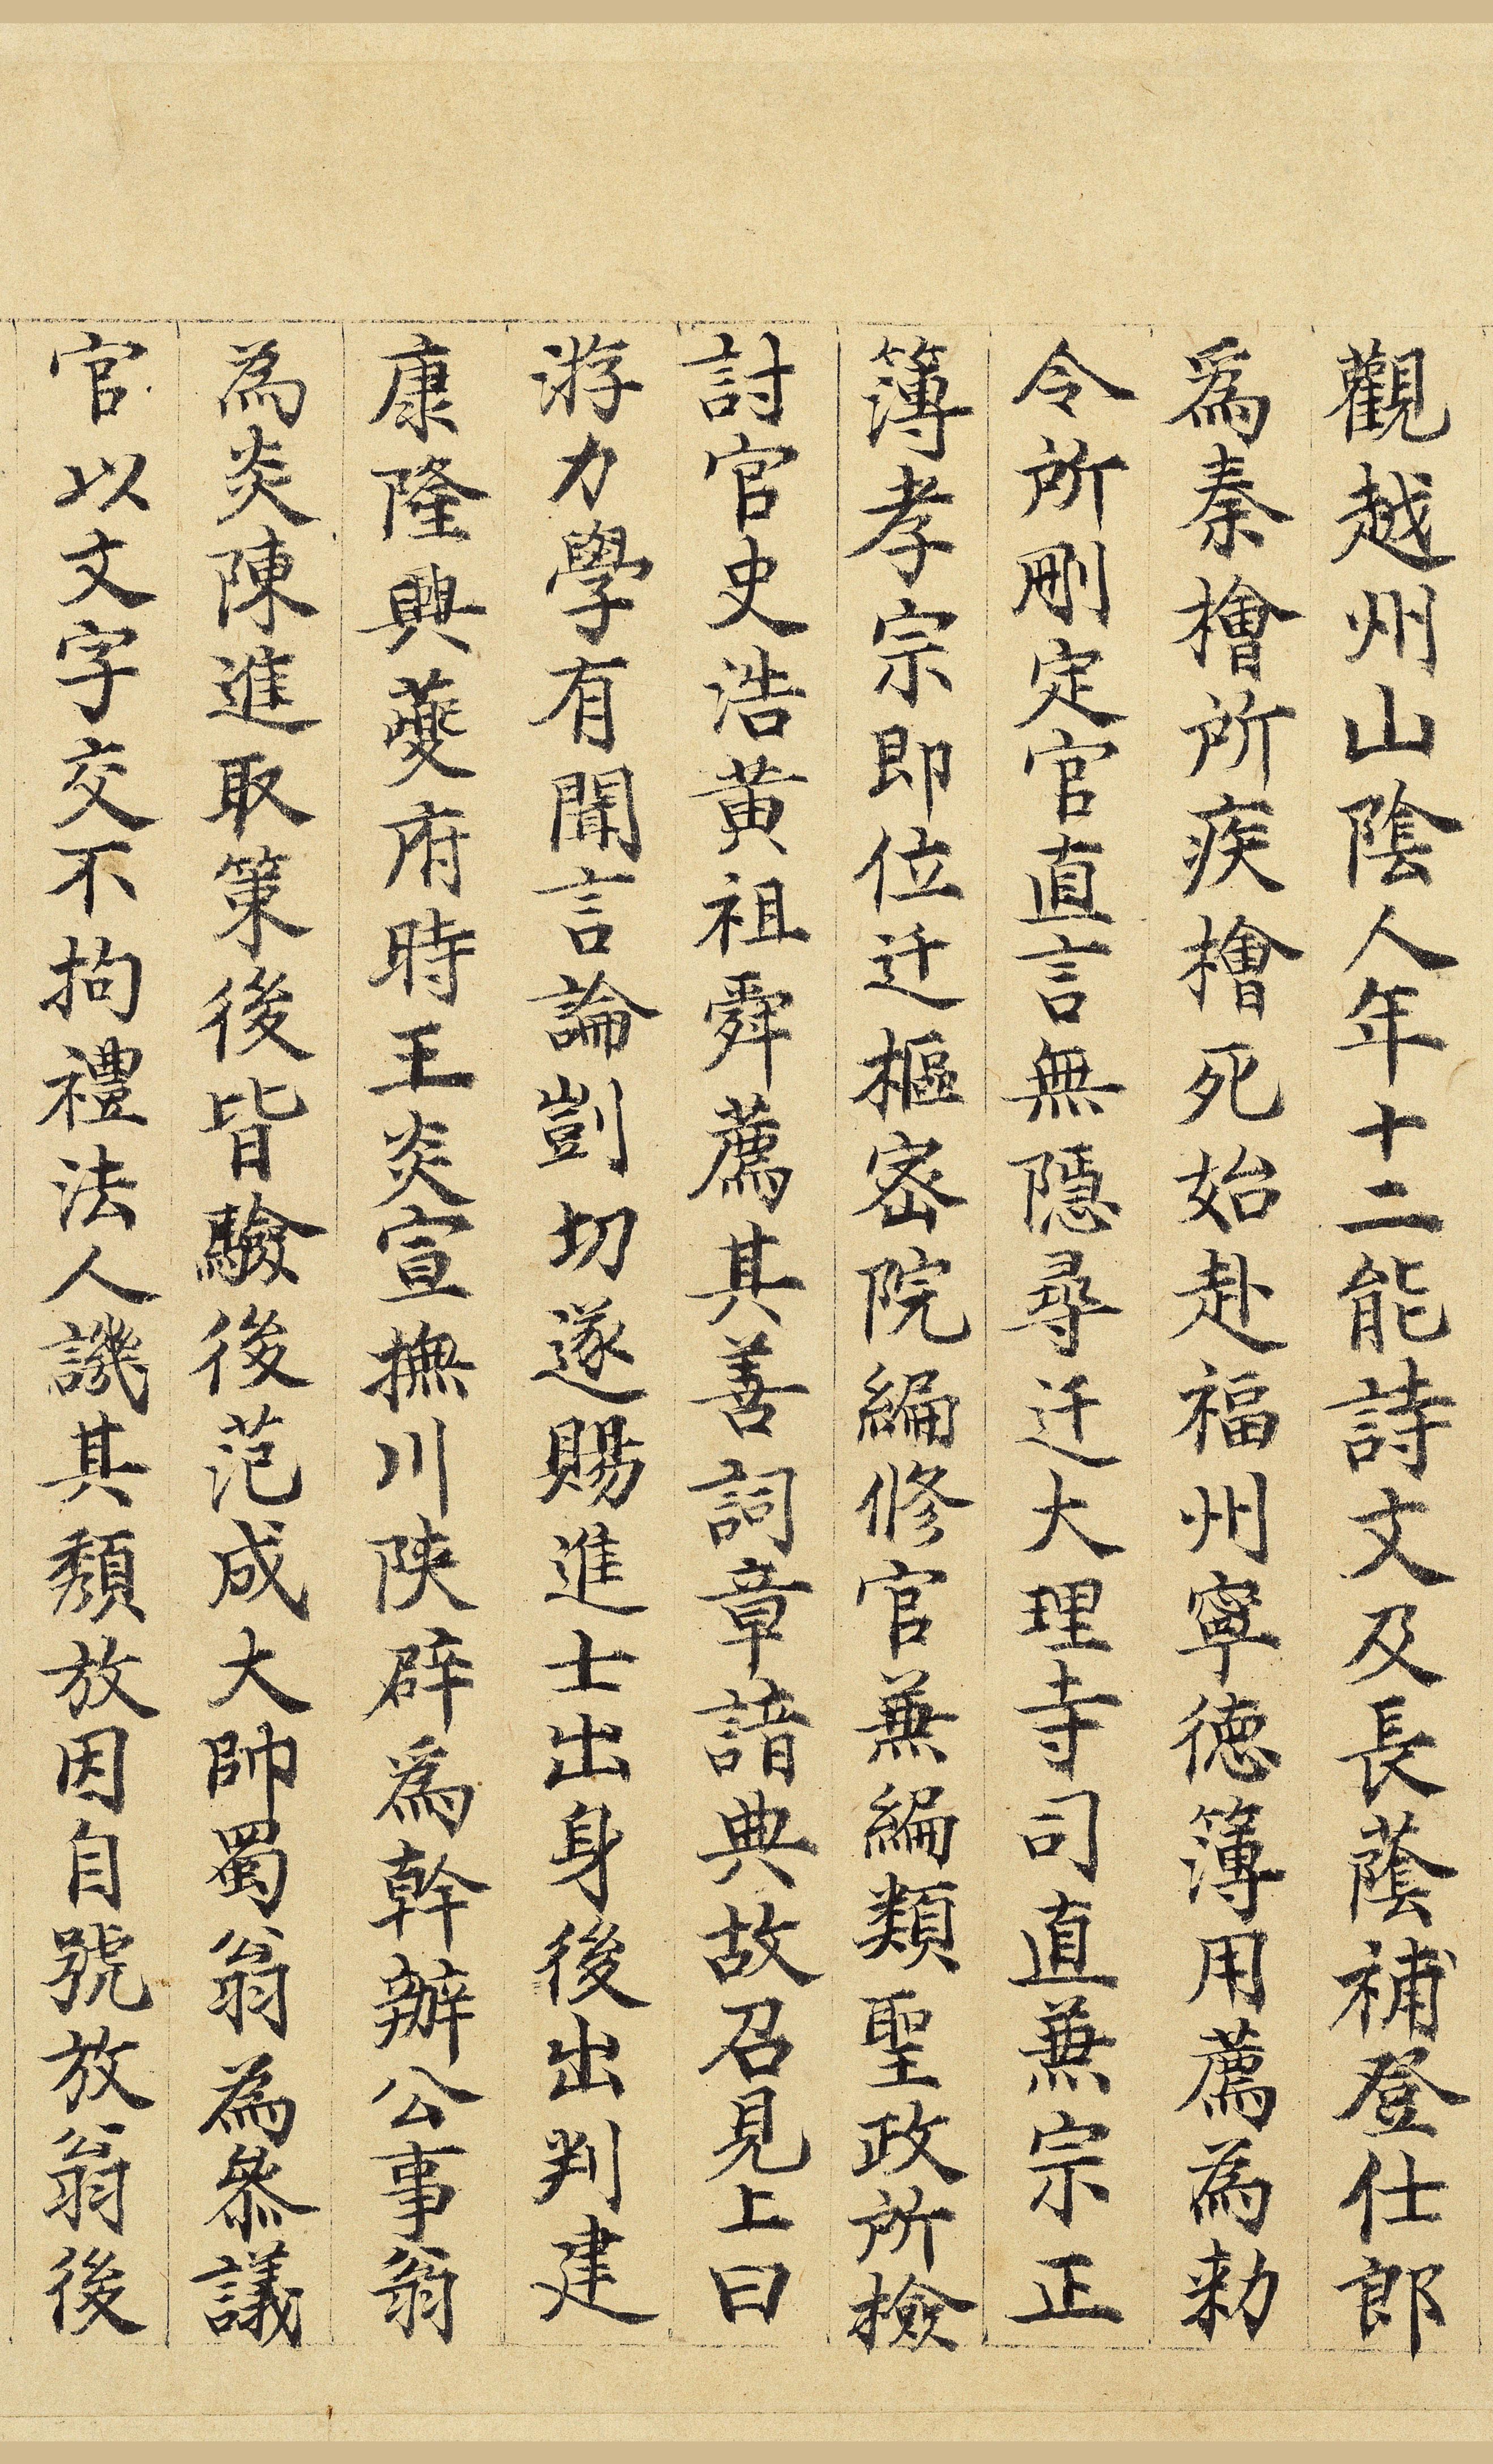 觀越州山陰人年十二能詩文及長蔭補登仕郎
爲秦檜所疾檜死始赴福州寧德簿用薦為勑
令所刪定官直言無隱尋迁大理寺司直兼宗正
簿孝宗即位迁樞密院編修官兼編類聖政所檢
討官史浩黄祖舜薦其善詞章諳典故召見上曰
游力學有聞言論剴切遂賜進士出身後出判建
康隆興夔府時王炎宣撫川陝辟爲幹辦公事翁
為炎陳進取策後皆驗後范成大帥蜀翁為叅議
官以文字交不拘禮法人譏其頹放因自號放翁後